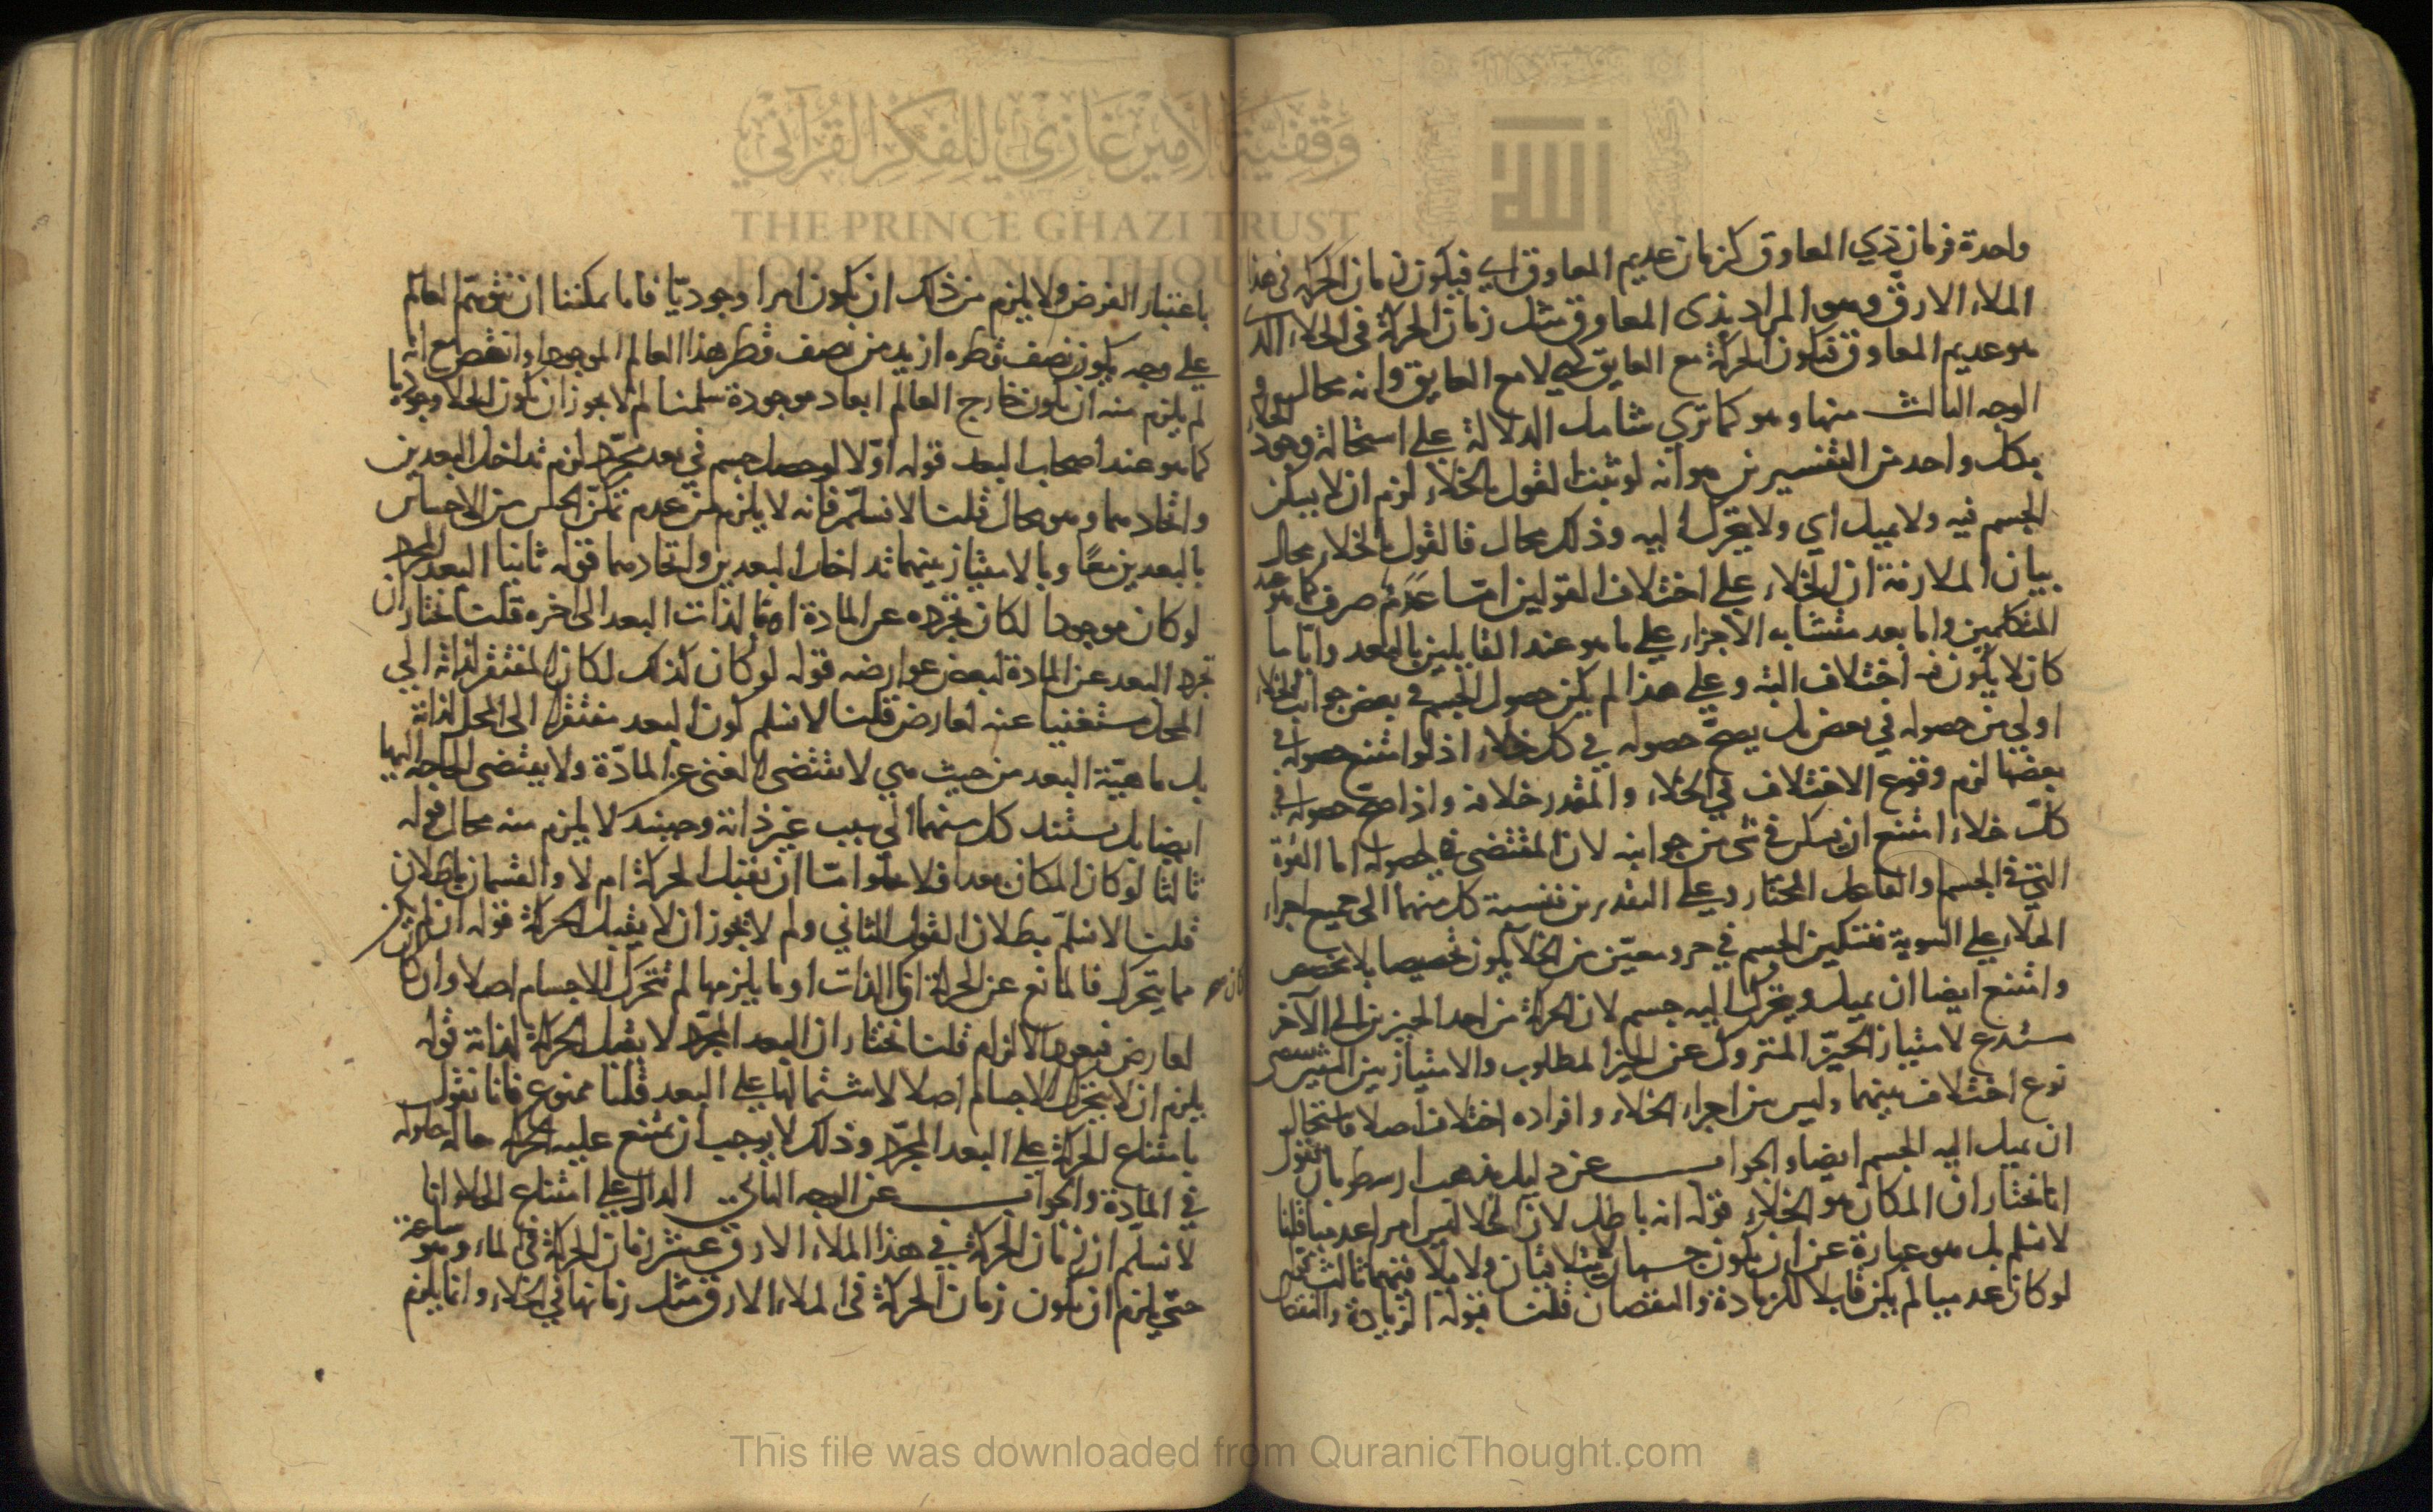 واحدة فزمان ذي المعاوق كزمان عديم المعاوق اي فيكون زمان الحركة في هذا
الملاء الارق وهو المراد بذي المعاوق مثل زمان الحركة في الخلاء الذي
هو عديم المعاوق فتكون الحركة مع العايق كهي لا مع العايق وانه محال
الوجه الثالث منها وهو كما تري شامل الدلالة علي استحالة وجود الخلاء
بكل واحد من التفسيرين هو انه لو ثبت القول بالخلاء لزم ان لا يسكن
الجسم فيه ولا يميل اي ولا يتحرك اليه وذلك محال فالقول بالخلاء محال
بيان الملازمة ان الخلاء علي اختلاف القولين اما عدم صرف كما هو عند
المتكلمين واما بعد متشابه الاجزاء علي ما هو عند القايلين بالبعد وايا ما
كان لا يكون فيه اختلاف البتة وعلي هذا لم يكن حصول الجسم في بعض جوانب الخلاء
اولي من حصوله في بعض بل يصح حصوله في كل خلاء اذ لو امتنع حصوله في
بعضها لزم وقوع الاختلاف في الخلاء والمقدر خلافه واذا صح حصوله في
كل خلاء امتنع ان يسكن في شي من جوانبه لان المقتضي لحصوله اما القوة
التي في الجسم او الفاعل المختار وعلي التقديرين فنسبة كل منهما الي جميع اجزاء
الخلاء علي السوية فتسكين الجسم في حيز معين من الخلا يكون تخصيصا بلا مخصص
وامتنع ايضا ان يميل ويتحرك اليه جسم لان الحركة من احد الحيزين الي الآخر
مستدع لامتياز الحيز المتروك عن الحيز المطلوب والامتياز بين الشيئين يستدعي
نوع اختلاف بينهما وليس بين اجزاء الخلاء وافراده اختلاف اصلا فاستحال
ان يميل اليه الجسم ايضا والجواب عن دليل مذهب ارسطو بان نقول
انا نختار ان المكان هو الخلاء قوله انه باطل لان الخلا ليس امرا عدميا قلنا
لا نسلم بل هو عبارة عن ان يكون جسمان لا يتلاقيان ولا يلاقيهما ثالث قوله
لو كان عدميا لم يكن قابلا للزيادة والنقصان قلنا قبوله الزيادة والنقصان
باعتبار الفرض ولا يلزم من ذلك ان يكون امرا وجوديا فانا يمكننا ان نتوهم العالم
علي وجه يكون نصف قطره ازيد من نصف قطر هذا العالم الموجود او انقص مع انه
لم يلزم منه ان يكون خارج العالم ابعاد موجودة سلمنا لم لا يجوز ان يكون الخلا وجوديا
كما هو عند اصحاب البعد قوله اولا لو حصل جسم في بعد مجرد لزم تداخل البعدين
واتحادهما وهو محال قلنا لا نسلم فانه لا يلزم من عدم تمكن الحس من الاحساس
بالبعدين معا وبالامتياز بينهما تداخل البعدين واتحادهما قوله ثانيا البعد المجرد
لو كان موجودا لكان تجرده عن المادة اما لذات البعد الي اخره قلنا نختار ان
تجرد البعد عن المادة لبعض عوارضه قوله لو كان كذلك لكان المفتقر لذاته الي
المحل مستغنيا عنه لعارض قلنا لا نسلم كون البعد مفتقرا الي المحل لذاته
بل ماهية البعد من حيث هي لا تقتضي الغني عن المادة ولا يقتضي الحاجة اليها
ايضا بل يستند كل منهما الي سبب غير ذاته وحينئذ لا يلزم منه محال قوله
ثالثا لو كان المكان بعدا فلا يخلو اما ان يقبل الحركة ام لا والقسمان باطلان
قلنا لا نسلم بطلان القول الثاني ولم لا يجوز ان لا يقبل الحركة قوله ان لم يكن
مما يتحرك فالمانع عن الحركة اما الذات او ما يلزمها لم تتحرك الاجسام اصلا وان كان
لعارض فيعود الالزام قلنا نختار ان البعد المجرد لا يقبل الحركة لذاته قوله
يلزم ان لا يتحرك الاجسام اصلا لاشتمالها علي البعد قلنا ممنوع فانا نقول
بامتناع الحركة علي البعد المجرد وذلك لا يوجب ان يمتنع عليه الحركة حالة حلوله
في المادة والجواب عن الوجه الثاني الدال علي امتناع الخلا انا
لا نسلم ان زمان الحركة في هذا الملاء الارق عشر زمان الحركة في الماء وهو ساعة
حتي يلزم ان يكون زمان الحركة في الملاء الارق مثل زمانها في الخلاء وانما يلزم
وقفية الأمير غازي للفكر القرآني
THE PRINCE GHAZI TRUST
FOR QUR'ANIC THOUGHT
This file was downloaded from QuranicThought.com